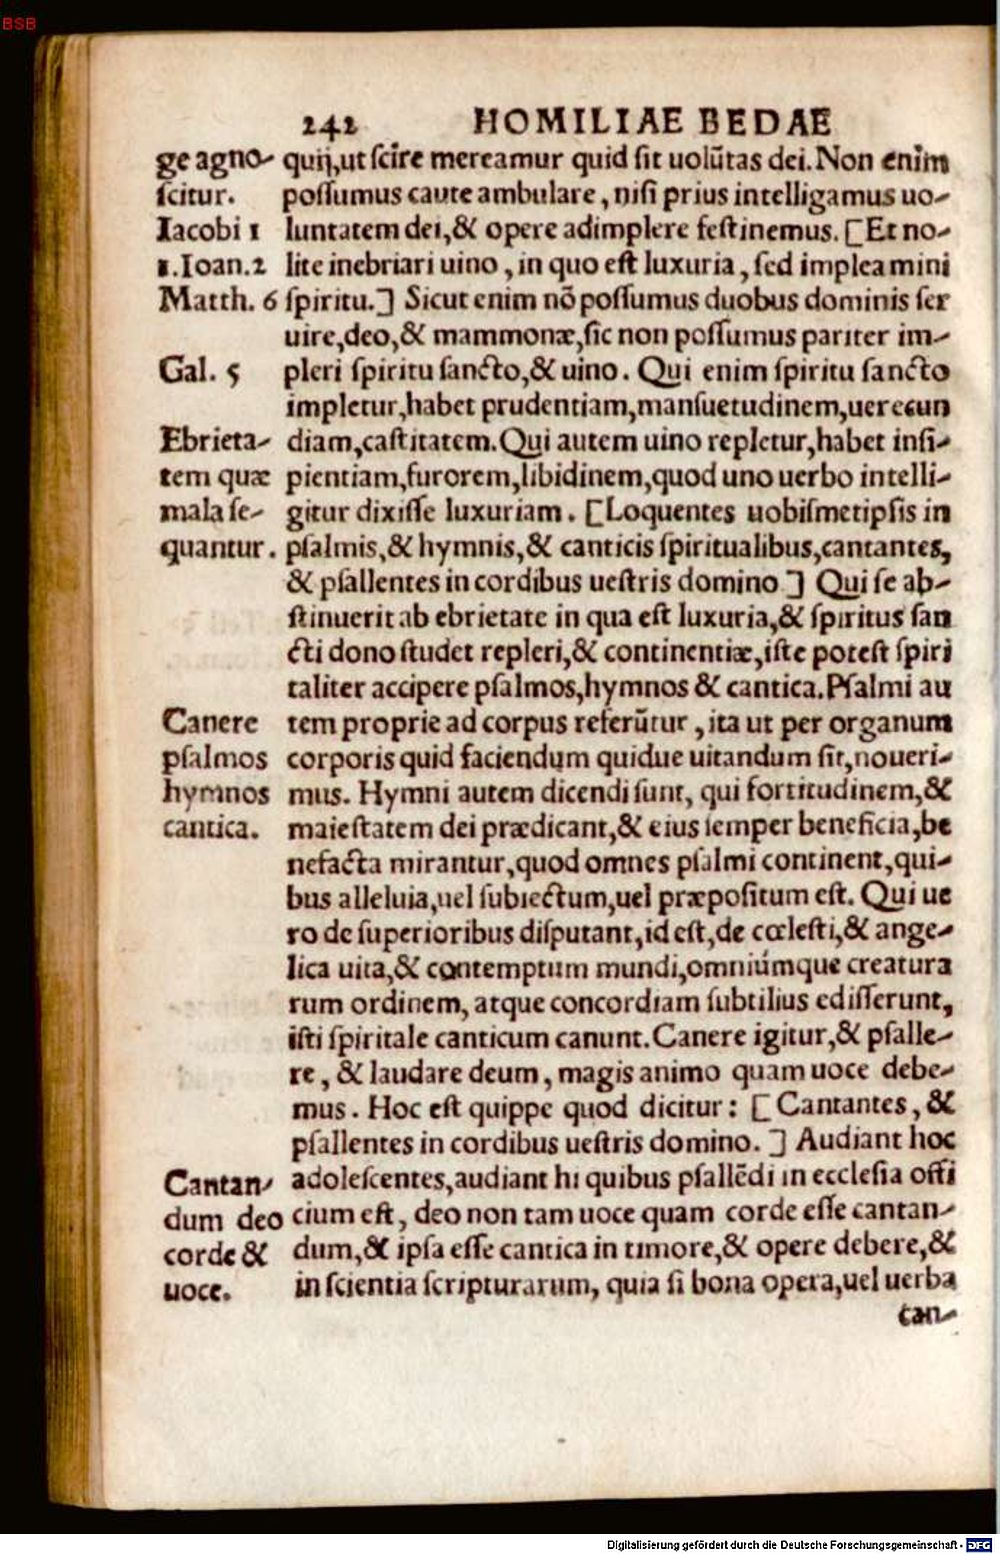 BSB
242 HOMILIAE BEDAE
ge agno-
scitur.
Iacobi 1
1.Ioan.2
Matth. 6
Gal. 5
Ebrieta-
tem quæ
mala se-
quantur.
Canere
psalmos
hymnos
cantica.
Cantan-
dum deo
corde &
uoce.
quij,ut scire mereamur quid sit uolūtas dei. Non enim
possumus caute ambulare, nisi prius intelligamus uo-
luntatem dei,& opere adimplere festinemus. [Et no-
lite inebriari uino, in quo est luxuria, sed implea mini
spiritu.] Sicut enim nō possumus duobus dominis ser
uire,deo,& mammonæ,sic non possumus pariter im-
pleri spiritu sancto,& uino. Qui enim spiritu sancto
impletur,habet prudentiam,mansuetudinem,uerecun
diam,castitatem.Qui autem uino repletur,habet insi-
pientiam,furorem,libidinem,quod uno uerbo intelli-
gitur dixisse luxuriam. [Loquentes uobismetipsis in
psalmis,& hymnis,& canticis spiritualibus,cantantes,
& psallentes in cordibus uestris domino] Qui se ab-
stinuerit ab ebrietate in qua est luxuria,& spiritus san
cti dono studet repleri,& continentiæ,iste potest spiri
taliter accipere psalmos,hymnos & cantica.Psalmi au
tem proprie ad corpus referūtur, ita ut per organum
corporis quid faciendum quidue uitandum sit,noueri-
mus. Hymni autem dicendi sunt, qui fortitudinem,&
maiestatem dei prædicant,& eius semper beneficia,be
nefacta mirantur,quod omnes psalmi continent,qui-
bus alleluia,uel subiectum,uel præpositum est. Qui ue
ro de superioribus disputant,id est,de cœlesti,& ange-
lica uita,& contemptum mundi,omniúmque creatura
rum ordinem, atque concordiam subtilius edisserunt,
isti spiritale canticum canunt.Canere igitur,& psalle-
re, & laudare deum, magis animo quam uoce debe-
mus. Hoc est quippe quod dicitur: [Cantantes, &
psallentes in cordibus uestris domino.] Audiant hoc
adolescentes,audiant hi quibus psallēdi in ecclesia offi
cium est, deo non tam uoce quam corde esse cantan-
dum,& ipsa esse cantica in timore,& opere debere,&
in scientia scripturarum, quia si bona opera,uel uerba
can-
Digitalisierung gefördert durch die Deutsche Forschungsgemeinschaft - DFG